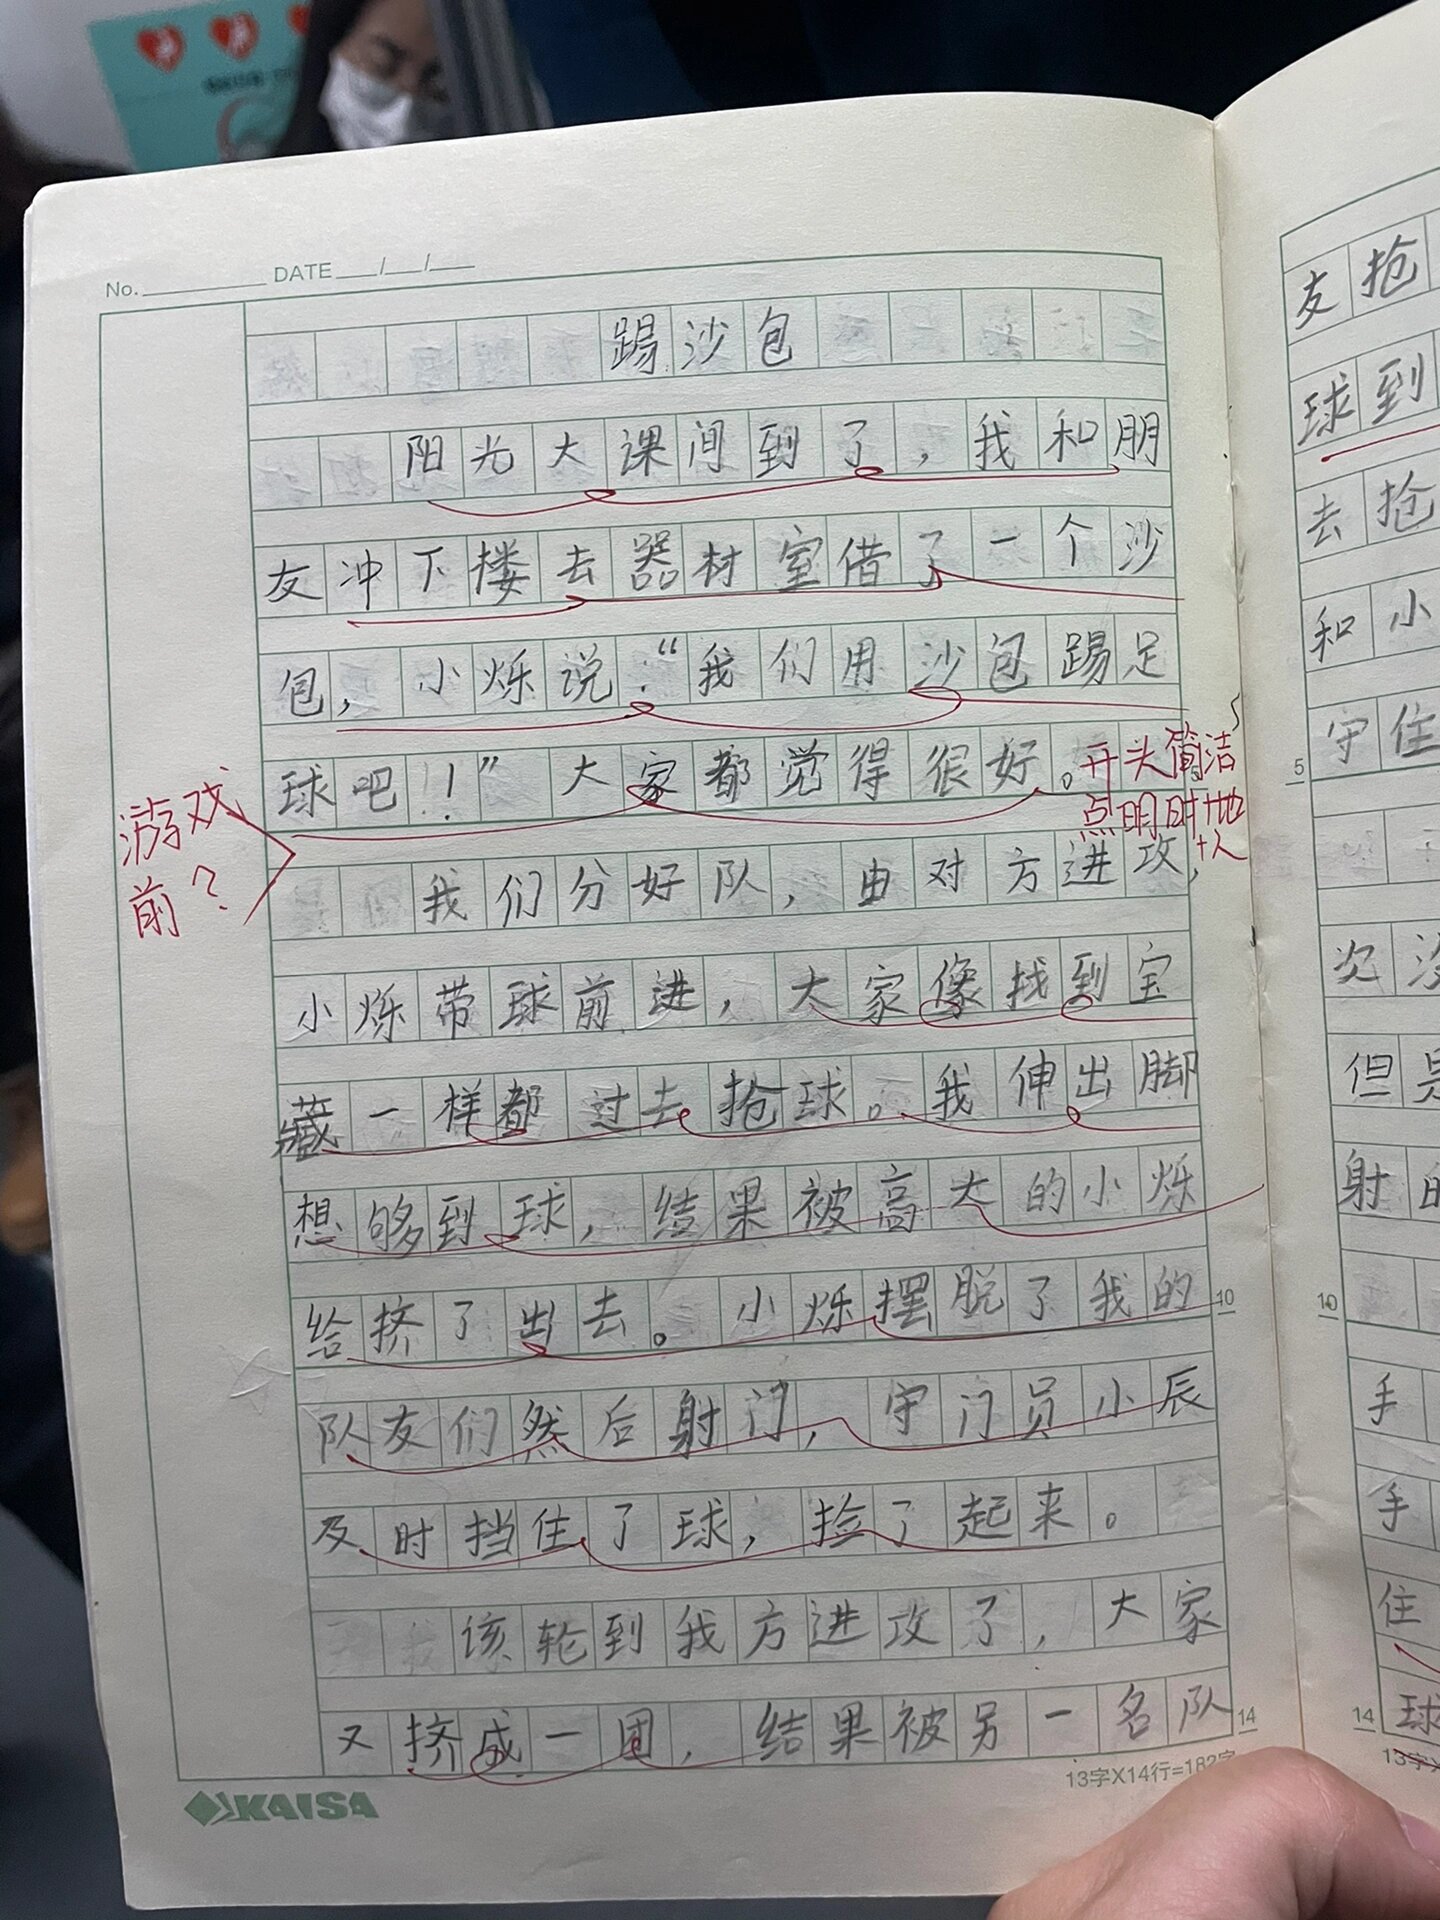 No. DATE / /
踢沙包
阳光大课间到了，我和朋
友冲下楼去器材室借了一个沙
包，小烁说：“我们用沙包踢足
球吧！”大家都觉得很好。
开头简洁
点明时+地
+人
游戏
前？
我们分好队，由对方进攻，
小烁带球前进，大家像找到宝
藏一样都过去抢球。我伸出脚
想够到球，结果被高大的小烁
给挤了出去。小烁摆脱了我的
队友们然后射门，守门员小辰
及时挡住了球，捡了起来。
该轮到我方进攻了，大家
又挤成一团，结果被另一名队
10
14
13字X14行=182字
KAISA
友抢
球到
去抢
和小
守住
5
次没
但是
射的
10
手
手
住
球
14
13字X